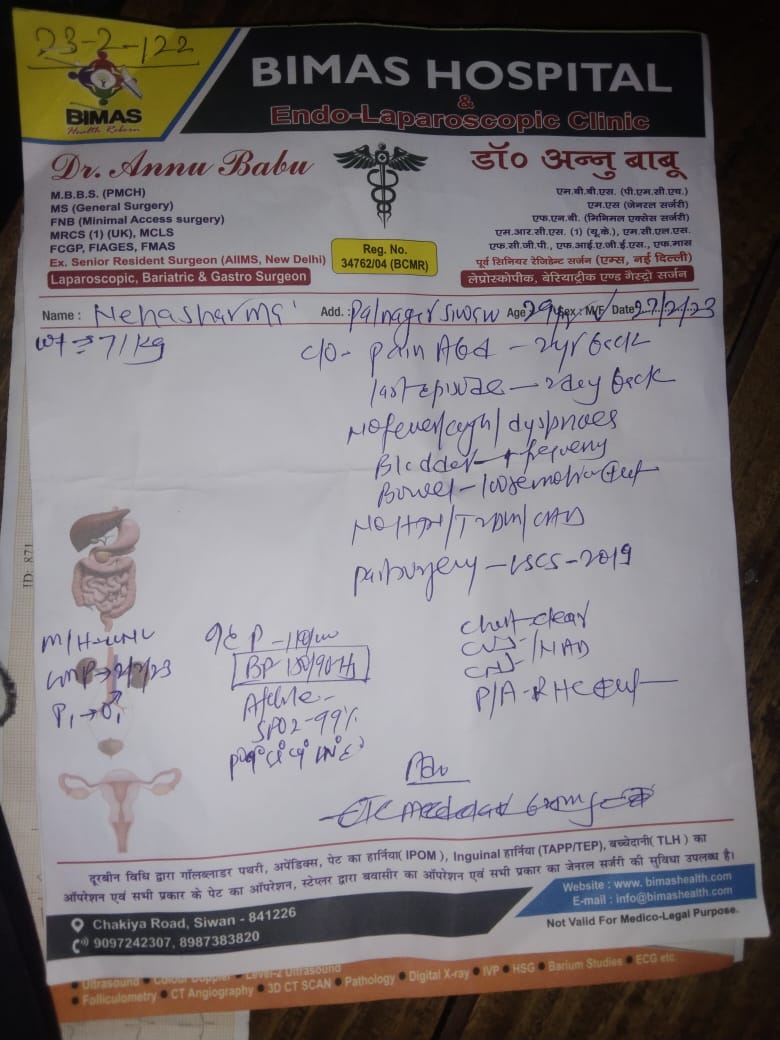 23-2-122
BIMAS
Health Reborn
BIMAS HOSPITAL
&
Endo-Laparoscopic Clinic
Dr. Annu Babu
M.B.B.S. (PMCH)
MS (General Surgery)
FNB (Minimal Access surgery)
MRCS (1) (UK), MCLS
FCGP, FIAGES, FMAS
Ex. Senior Resident Surgeon (AIIMS, New Delhi)
Laparoscopic, Bariatric & Gastro Surgeon
Reg. No.
34762/04 (BCMR)
डॉ० अन्नु बाबू
एम.बी.बी.एस. (पी.एम.सी.एच.)
एम.एस (जेनरल सर्जरी)
एफ.एन.बी. (मिनिमल एक्सेस सर्जरी)
एम.आर.सी.एस. (1) (यू.के.), एम.सी.एल.एस.
एफ.सी.जी.पी., एफ.आई.ए.जी.ई.एस., एफ.मास
पूर्व सिनियर रेजिडेन्ट सर्जन (एम्स, नई दिल्ली)
लेप्रोस्कोपीक, बेरियाट्रीक एण्ड गैस्ट्रो सर्जन
Name : Neha Sharma Add. : Palnagar Siwan Age : 29 Sex : M/F Date 27/2/23
wt 71 kg
c/o - pain Abd - 2yr back
last episode - 2day back
No fever/cough/dyspnoea
Bladder - frequency
Bowel - loose motion
No HTN/T2DM/CAD
Past surgery - LSCS - 2019
M/H
LMP 2/2/23
P1
O/E P - 110/m
BP 150/90
Afebrile
SPO2 - 99%
Chest - clear
CVS
CNS /NAD
P/A - RHC
Adv
दूरबीन विधि द्वारा गॉलब्लाडर पथरी, अपेंडिक्स, पेट का हार्निया( IPOM ), Inguinal हार्निया (TAPP/TEP), बच्चेदानी( TLH ) का
ऑपरेशन एवं सभी प्रकार के पेट का ऑपरेशन, स्टेप्लर द्वारा बवासीर का ऑपरेशन एवं सभी प्रकार का जेनरल सर्जरी की सुविधा उपलब्ध है।
Chakiya Road, Siwan - 841226
9097242307, 8987383820
Website : www. bimashealth.com
E-mail : info@bimashealth.com
Not Valid For Medico-Legal Purpose.
Ultrasound • Colour Doppler • Level-2 Ultrasound
• Folliculometry • CT Angiography • 3D CT SCAN • Pathology • Digital X-ray • IVP • HSG • Barium Studies • ECG etc.
ID: 871